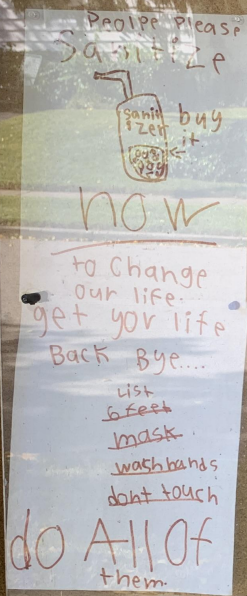 Peolpe Please
Sanitize
sanit
izer
buy
it
now
to change
our life.
get yor life
Back Bye....
List
6 feet
mask
wash hands
dont touch
do All Of
them.